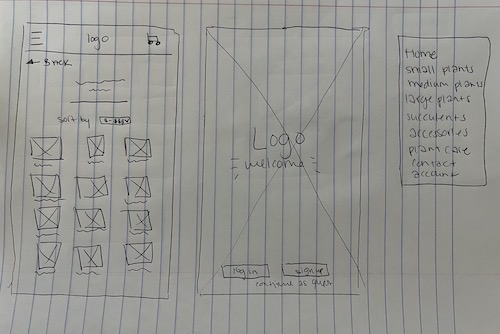 logo
← Back
sort by
Logo
welcome
log in
sign up
continue as guest
Home
small plants
medium plants
large plants
succulents
accessories
plant care
contact
account